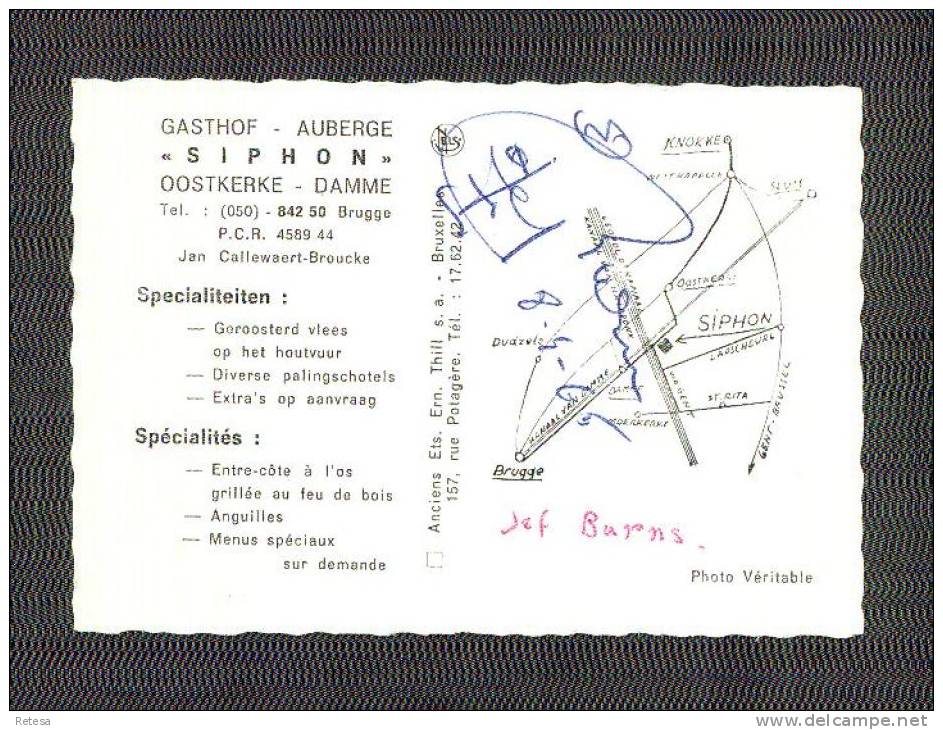 GASTHOF - AUBERGE
« SIPHON »
OOSTKERKE - DAMME
Tel. : (050) - 842 50 Brugge
P.C.R. 4589 44
Jan Callewaert-Broucke
Specialiteiten :
— Geroosterd vlees
op het houtvuur
— Diverse palingschotels
— Extra's op aanvraag
Spécialités :
— Entre-côte à l'os
grillée au feu de bois
— Anguilles
— Menus spéciaux
sur demande
Anciens Ets. Ern. Thill s.a. - Bruxelles
157, rue Potagère. Tél. : 17.62.42
NELS
KNOKKE
WESTKAPELLE
SLUIS
OOSTKERKE
SIPHON
LAPSCHEURE
Dudzele
KANAAL VAN DAMME
DAMME
ST. RITA
MOERKERKE
VIA GENT
GENT-BRUSSEL
Brugge
Jef Burns.
Photo Véritable
Retesa
www.delcampe.net